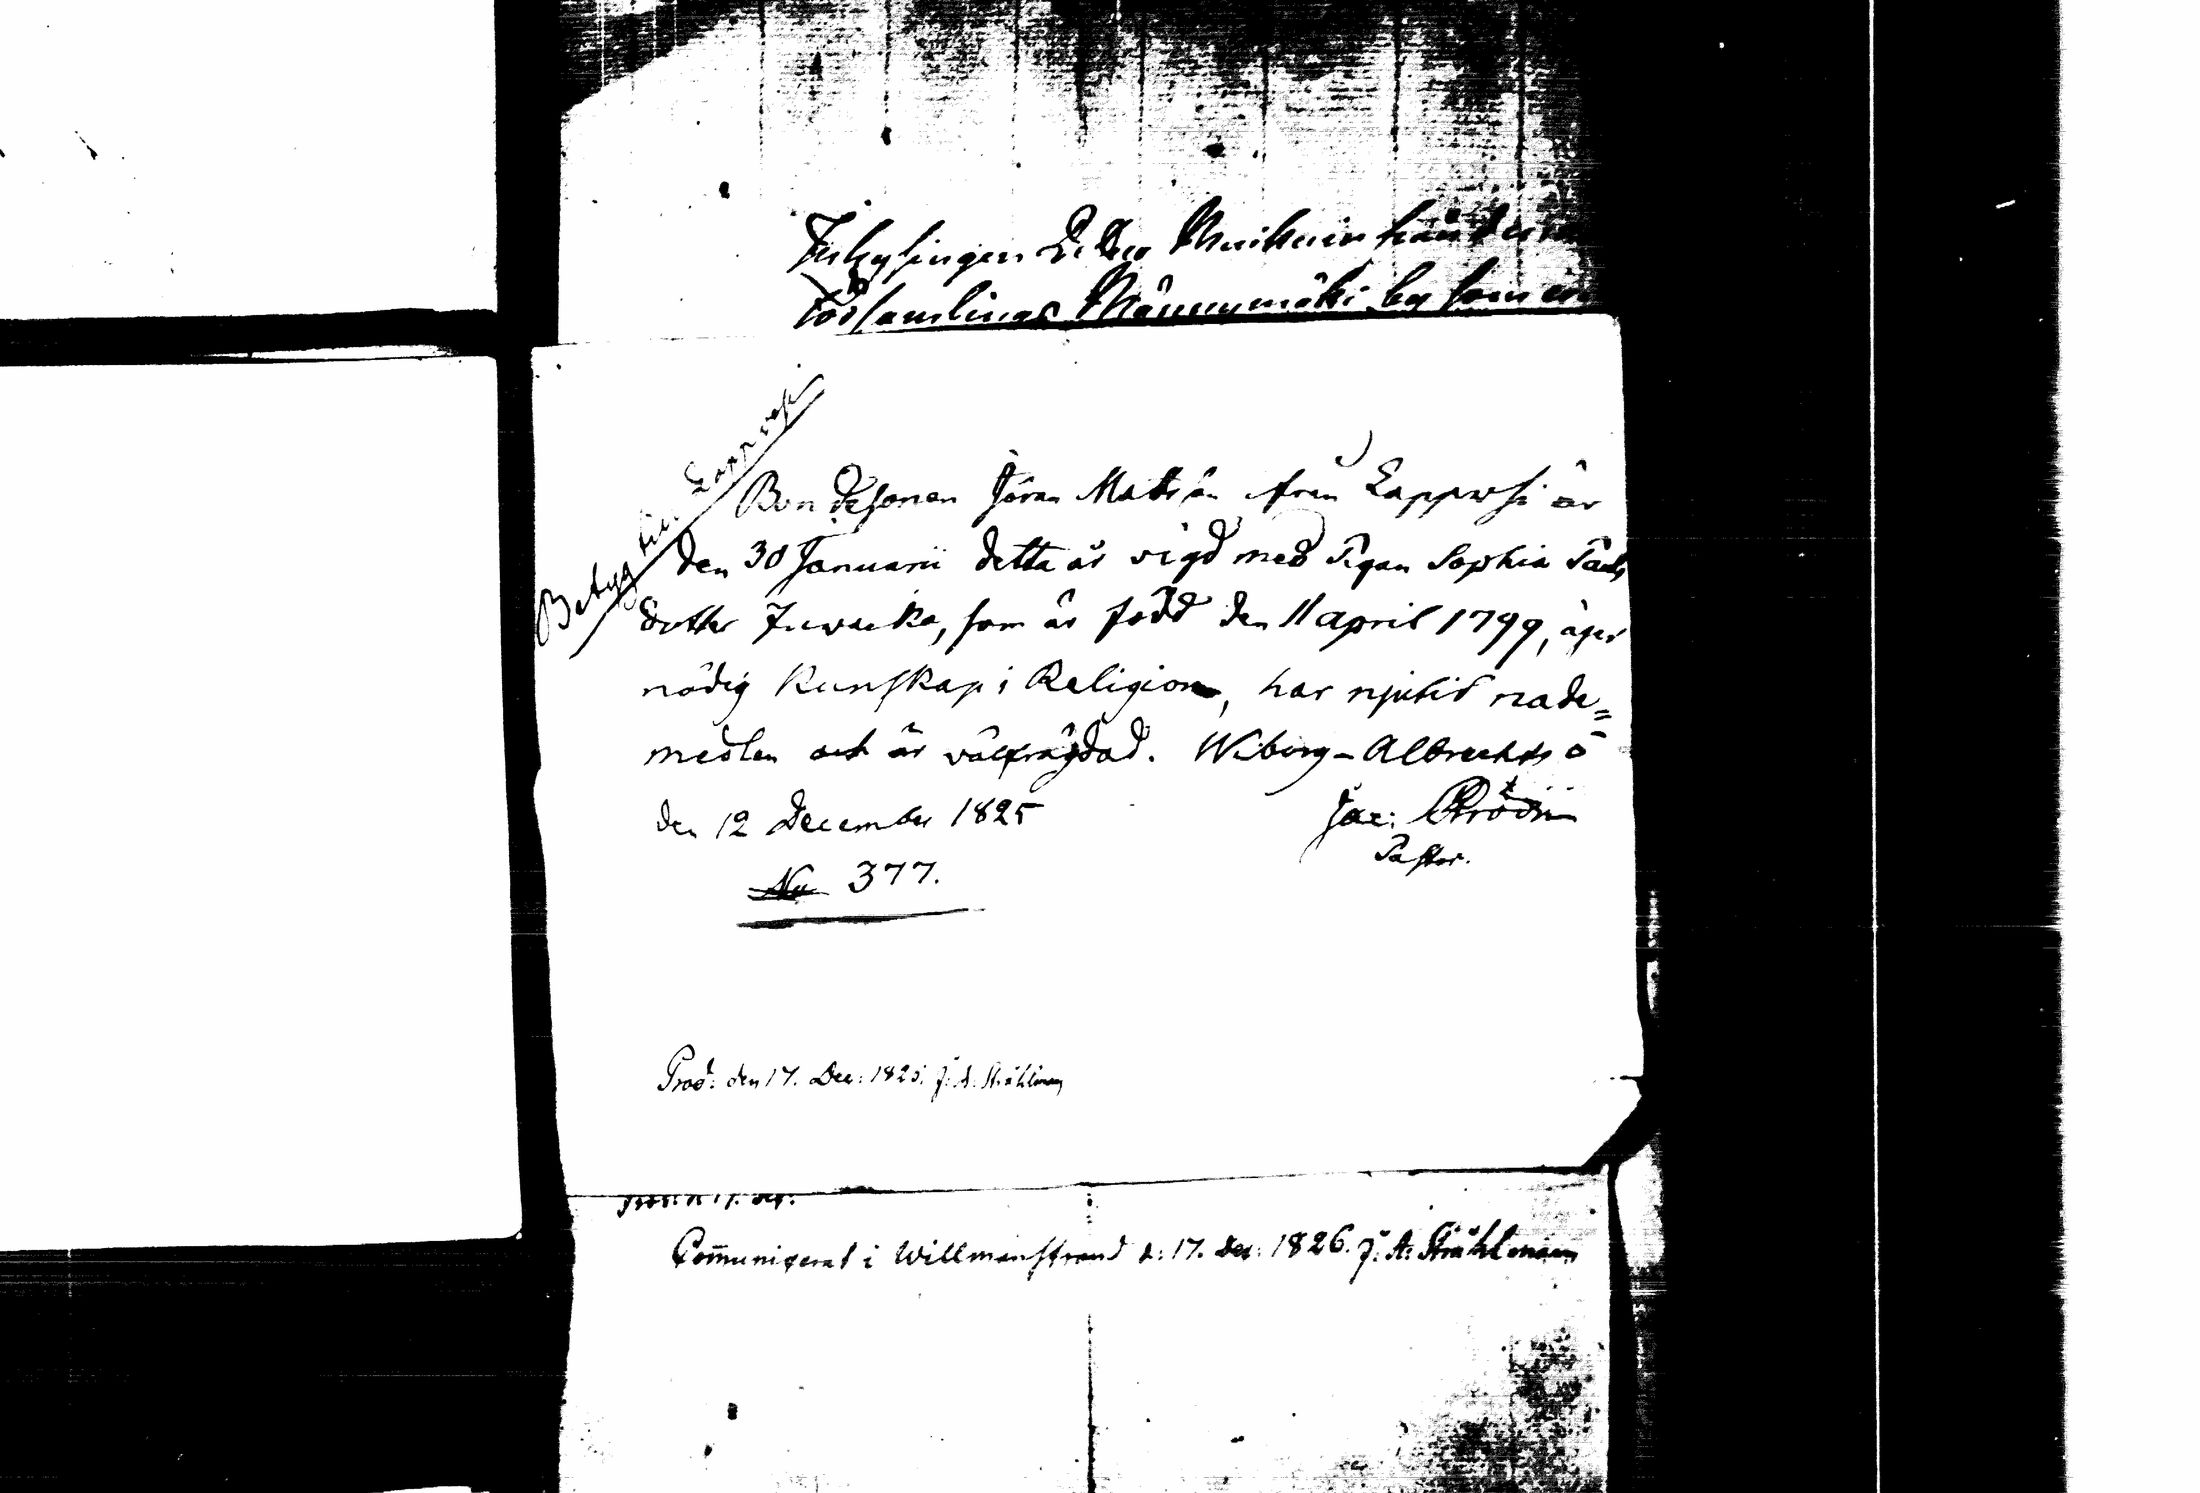 Inhysingen
Församlings Männymäki by som en
Betyg till Lappvesi
Bondesonen Jöran Mattsson från Lappvesi är
den 30 Januarii detta år vigd med Pigan Sophia Påls
dotter Juvacka, som är född den 11 April 1799, äger
nödig kunskap i Religion, har njutit nade=
medlen och är välfrägdad. Wiborg-Albrechts ö
den 12 December 1825
Jac:
Pastor.
No 377.
Prod: den 17. Dec: 1825. J. A. Stråhlman
Com̄unicerat i Willmanstrand d: 17. Dec: 1826. J. A. Stråhlmann